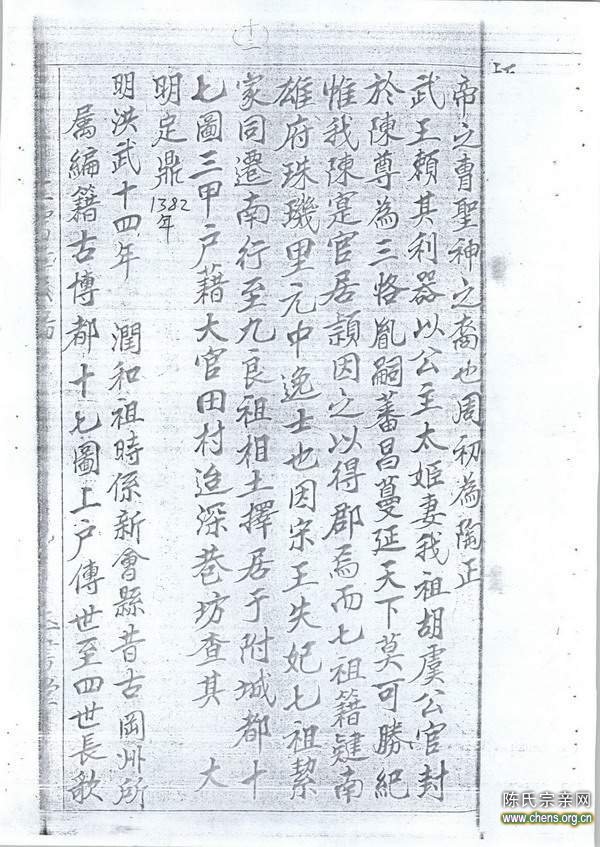 十二
帝之曹聖神之裔也周初為陶正
武王賴其利器以公主太姬妻我祖胡虞公官封
於陳尊為三恪胤嗣蕃昌蔓延天下莫可勝紀
惟我陳寔官居潁因之以得郡焉而七祖籍肄南
雄府珠璣里元中逸士也因宋王失妃七祖挈
家同遷南行至九良祖相土擇居于附城都十
七圖三甲户籍大官田村迨深巷坊查其 大
明定鼎1382年
明洪武十四年 潤和祖時係新會縣昔古岡州所
屬編籍古博都十七圖上户傳世至四世長歌
陈氏宗亲网
www.chens.org.cn